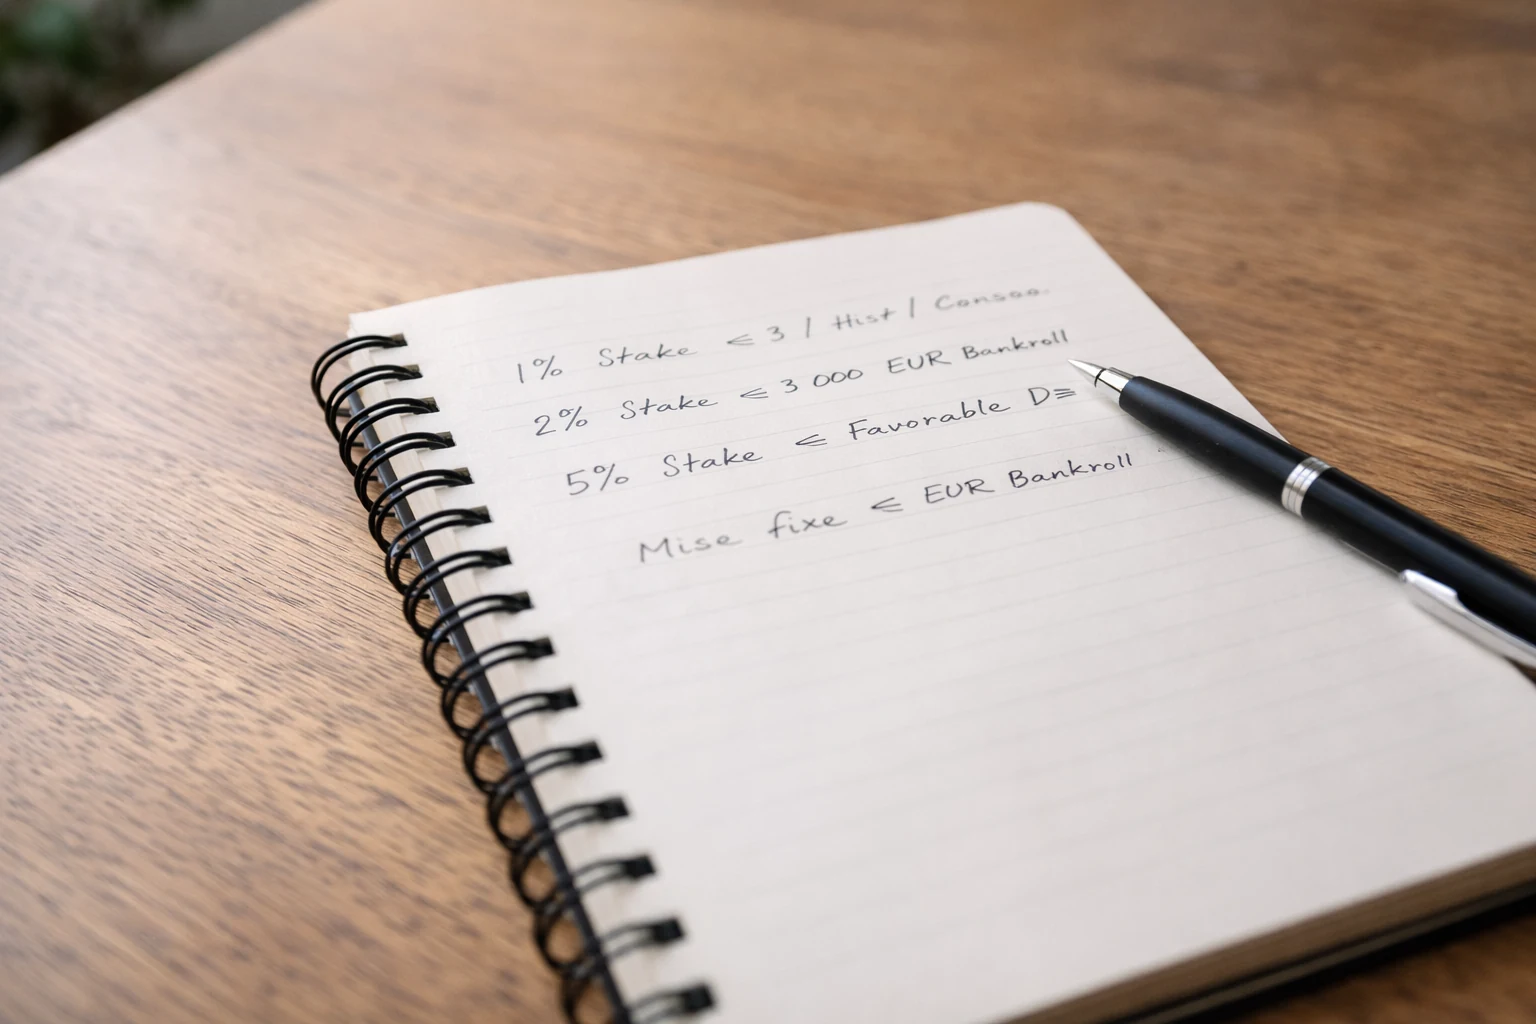 1% Stake ⋜ 3 / Hist /
2% Stake ⋜ 3 000 EUR Bankroll
5% Stake ⋜ Favorable D≡
Mise fixe ⋜ EUR Bankroll